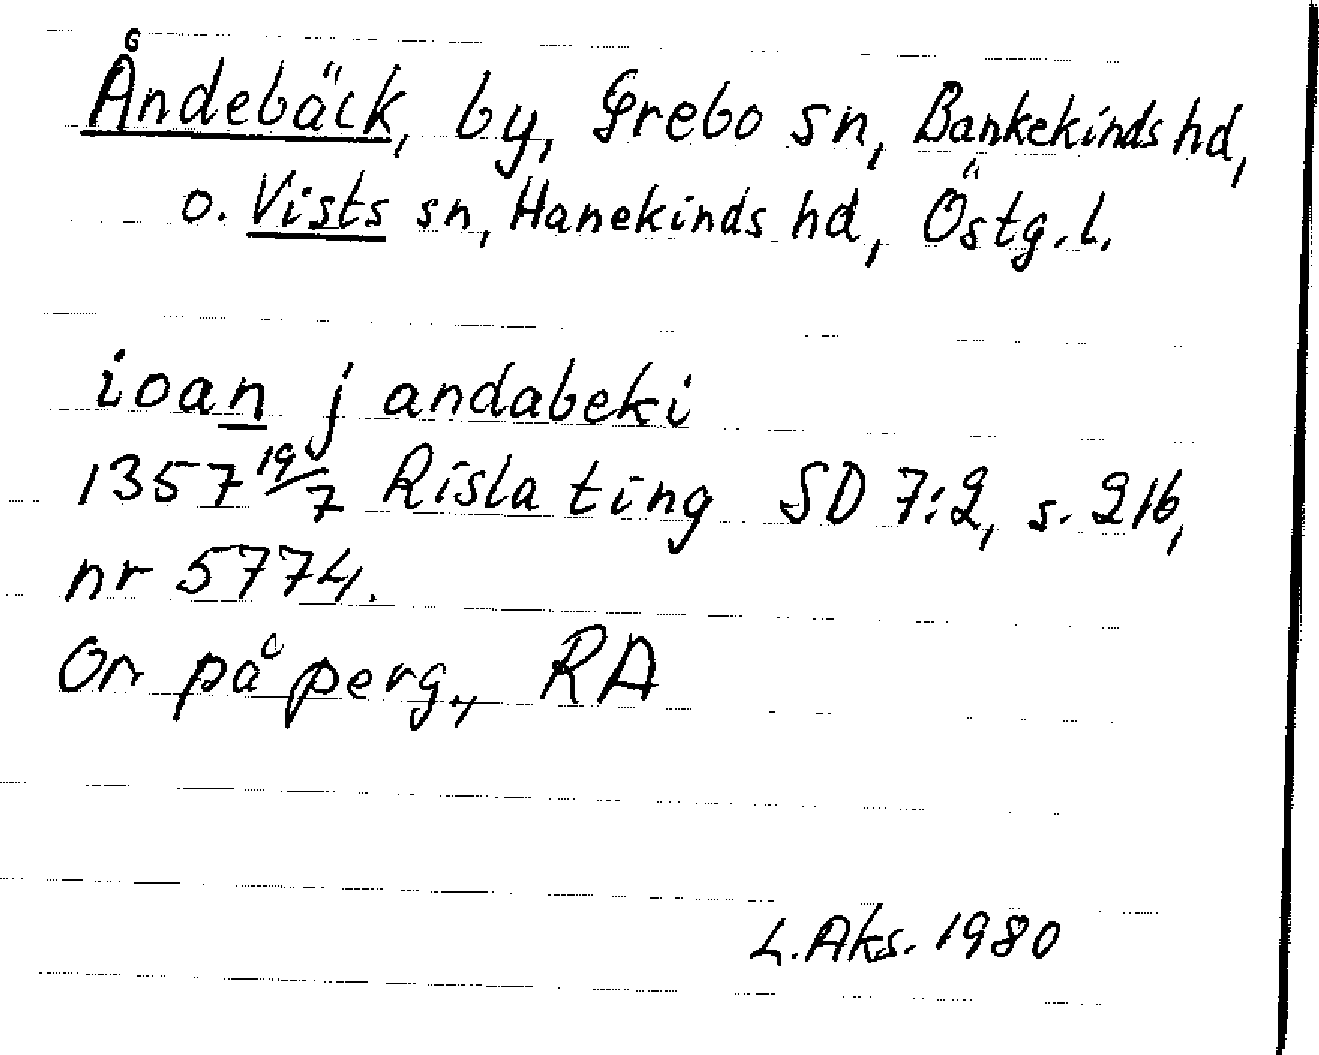 G
Åndebäck, by, Grebo sn, Bankekinds hd,
o. Vists sn, Hanekinds hd, Östg. l.
ioan j andabeki
1357 19/7 Risla ting SD 7:2, s. 216,
nr 5774.
Or på perg., RA
L. Aks. 1980